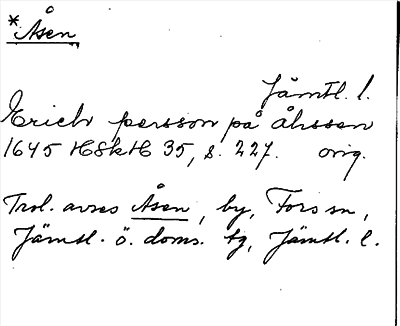 *Åsen
Jämtl. l.
Erich persson på åhssen
1645 HSkH 35, s. 227. orig.
Trol. avses Åsen, by, Fors sn,
Jämtl. ö. doms. tg, Jämtl. l.